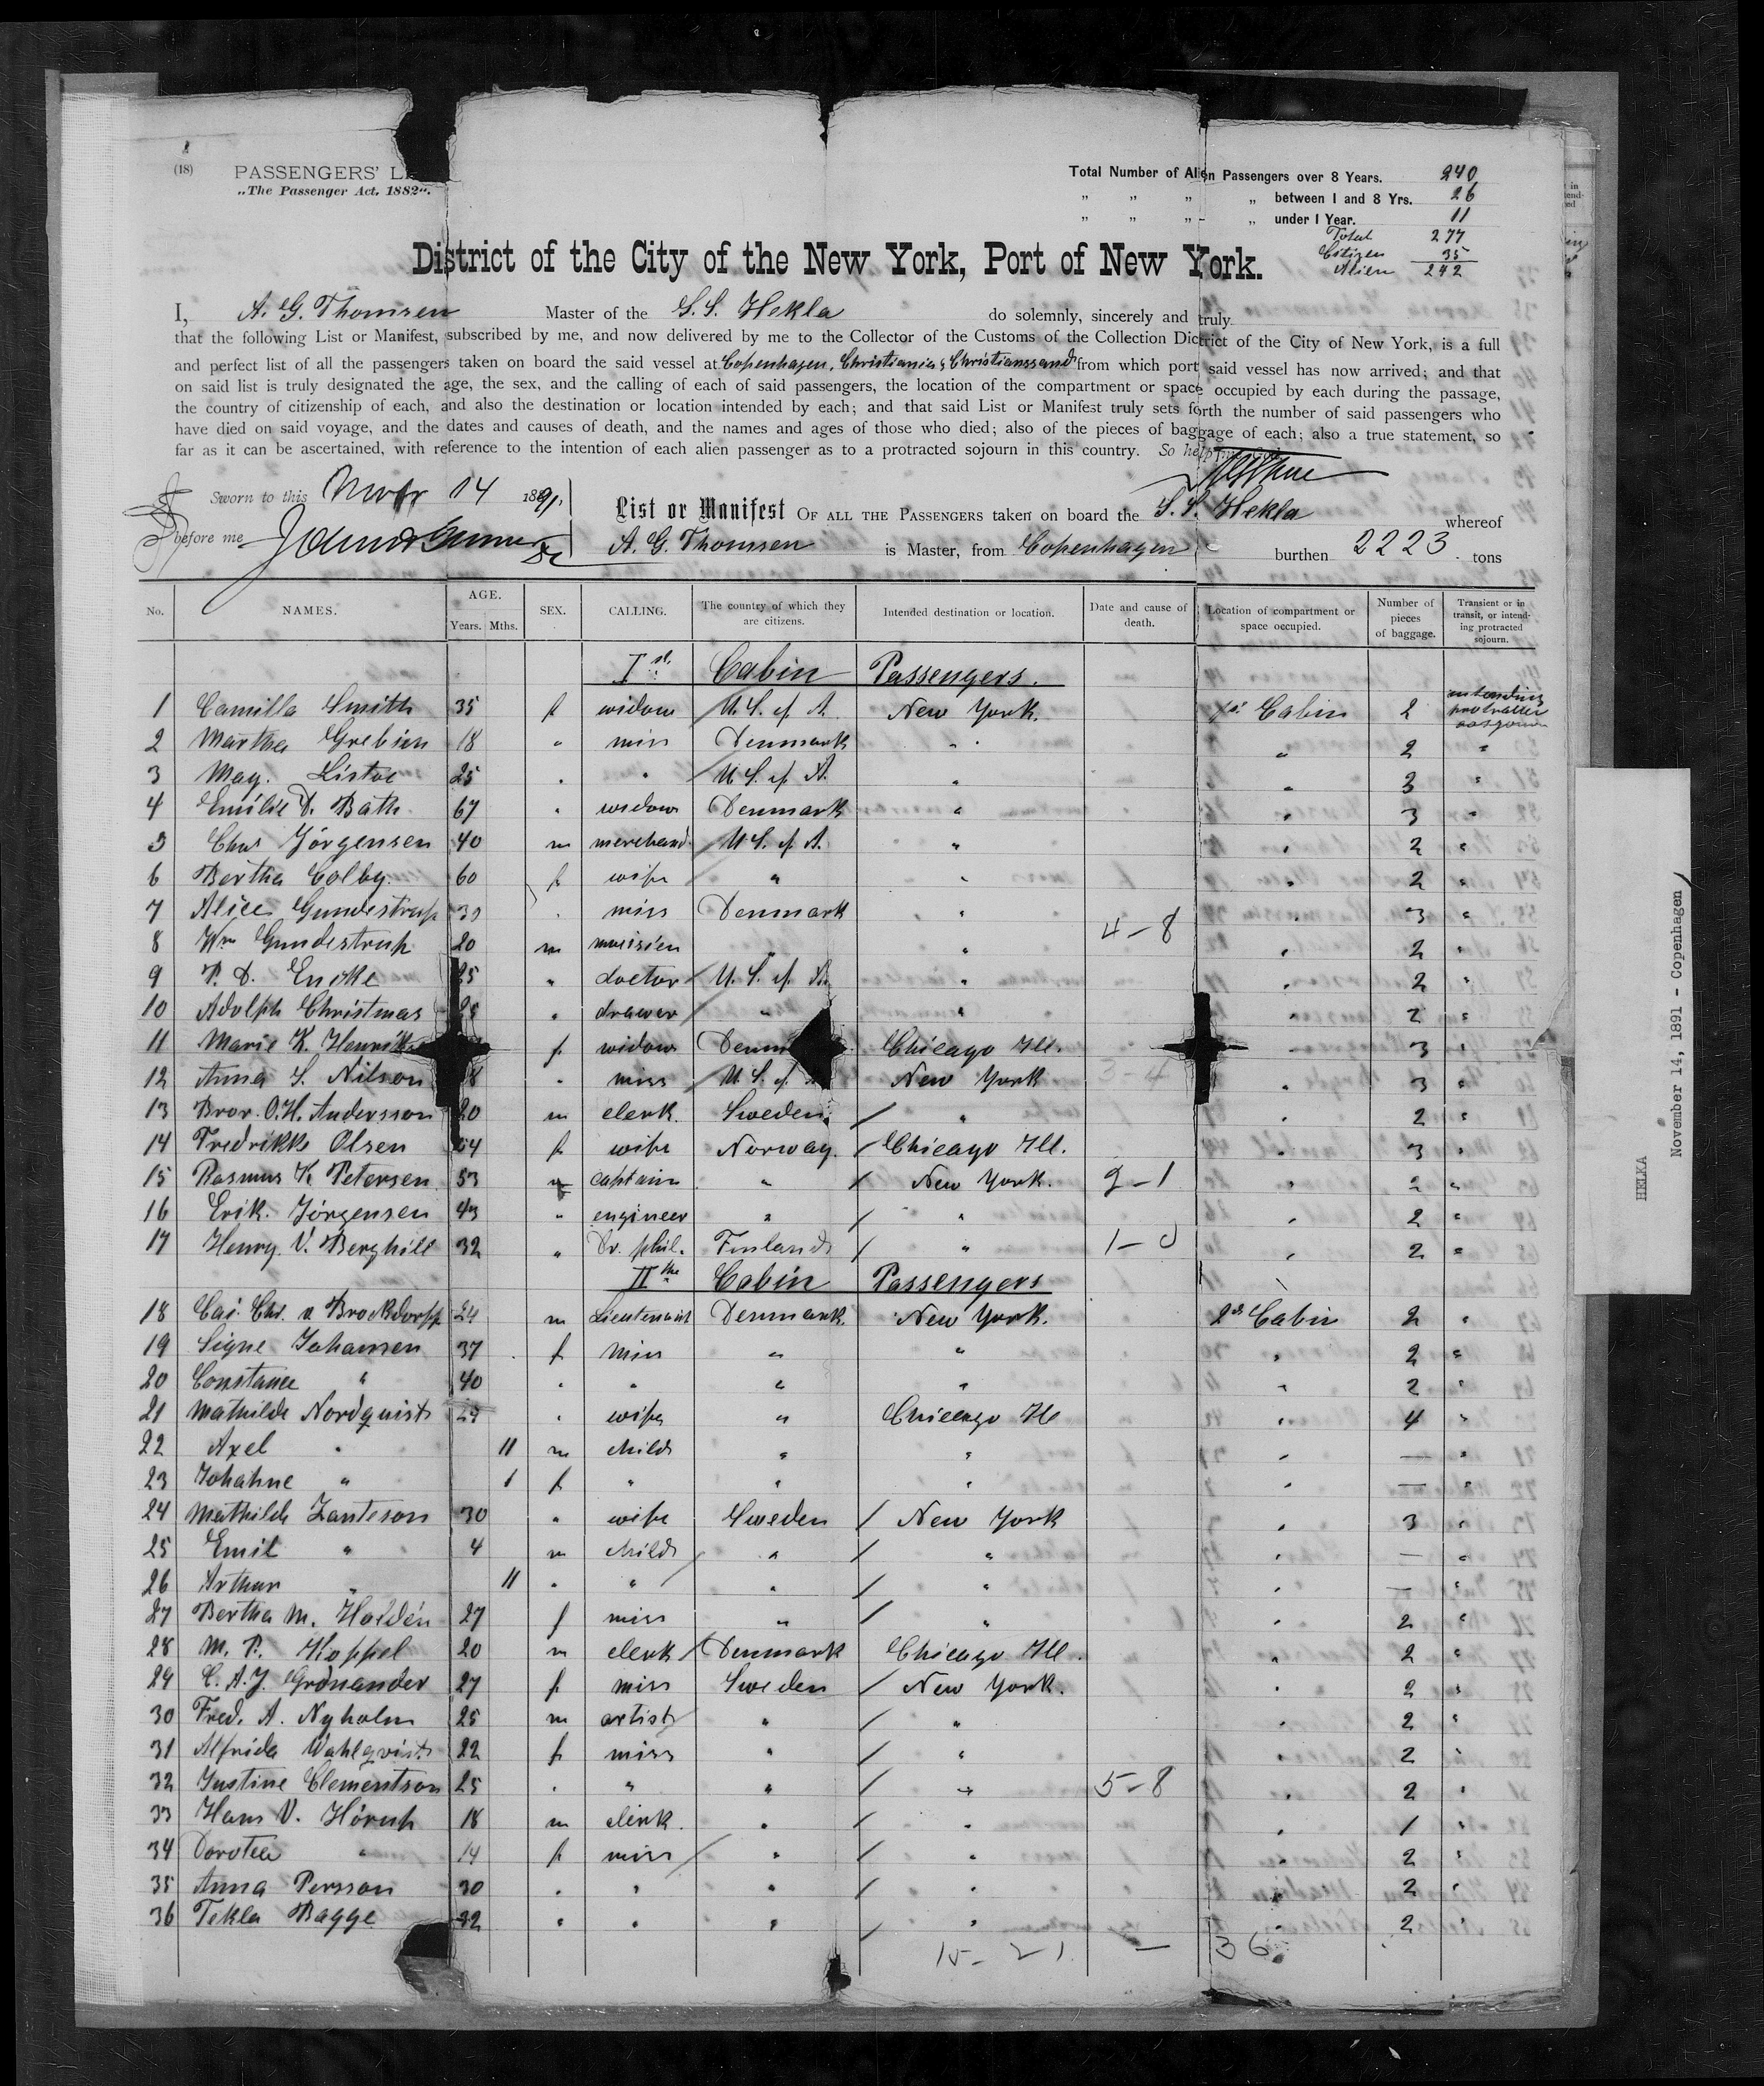 (18) PASSENGERS' L
„The Passenger Act, 1882“.
Total Number of Alien Passengers over 8 Years. 240
„ „ „ „ between 1 and 8 Yrs. 26
„ „ „ „ under 1 Year. 11
Total 277
Citizen 35
Alien 242
District of the City of the New York, Port of New York.
I, A. G. Thomsen Master of the S. S. Hekla do solemnly, sincerely and truly
that the following List or Manifest, subscribed by me, and now delivered by me to the Collector of the Customs of the Collection District of the City of New York, is a full
and perfect list of all the passengers taken on board the said vessel at Copenhagen, Christiania & Christianssand from which port said vessel has now arrived; and that
on said list is truly designated the age, the sex, and the calling of each of said passengers, the location of the compartment or space occupied by each during the passage,
the country of citizenship of each, and also the destination or location intended by each; and that said List or Manifest truly sets forth the number of said passengers who
have died on said voyage, and the dates and causes of death, and the names and ages of those who died; also of the pieces of baggage of each; also a true statement, so
far as it can be ascertained, with reference to the intention of each alien passenger as to a protracted sojourn in this country. So help
Sworn to this Novbr 14 1891.
before me
List or Manifest OF ALL THE PASSENGERS taken on board the S. S. Hekla whereof
A. G. Thomsen is Master, from Copenhagen burthen 2223 tons
No. NAMES. AGE. Years. Mths. SEX. CALLING. The country of which they are citizens. Intended destination or location. Date and cause of death. Location of compartment or space occupied. Number of pieces of baggage. Transient or in transit, or intending protracted sojourn.
Ist Cabin Passengers.
1 Camilla Smith 35 f widow U. S. of A. New York. 1st Cabin 2 intending protracted sojourn
2 Martha Grebien 18 " miss Denmark " " 2 "
3 Mag. Listoe 25 " " U. S. of A. " " 3 "
4 Emilie D. Bath 67 " widow Denmark " " 3 "
5 Chas Jörgensen 40 m merchand U. S. of A. " " 2 "
6 Bertha Colby 60 f wife " " " 2 "
7 Alice Gundestrup " miss Denmark " " 3 "
8 Wm Gundestrup 20 m musicien " " 4-8 " 2 "
9 P. D. Encke 25 " doctor U. S. of A. " " 2 "
10 Adolph Christmas " drawer " " " 2 "
11 Marie K. f widow Denm Chicago Ill. " 3 "
12 Anna S. Nilson 8 " miss U. S. of A New York 3-4 " 3 "
13 Bror. O. H. Andersson 20 m clerk Sweden " " 2 "
14 Fredrikke Olsen 54 f wife Norway Chicago Ill. " 3 "
15 Rasmus K. Petersen 53 m captain " New York. 2-1 " 2 "
16 Erik Jörgensen 43 " engineer " " " 2 "
17 Henry V. Berghill 32 " Dr. phil. Finland " 1-0 " 2 "
IInd Cabin Passengers
18 Caj. Chr. v. Brockdorff m Lieutenant Denmark New York. 2d Cabin 2 "
19 Signe Johansen 37 f miss " " " 2 "
20 Constance " 40 " " " " " 2 "
21 Mathilde Nordquist 29 " wife " Chicago Ill " 4 "
22 Axel " 11 m child " " " — "
23 Johahne " 1 f " " " " — "
24 Mathilde Zanteson 30 " wife Sweden New York " 3 "
25 Emil " 4 m child " " " — "
26 Arthur " 11 " " " " " — "
27 Bertha M. Holdén 27 f miss " " " 2 "
28 M. P. Koppel 20 m clerk Denmark Chicago Ill. " 2 "
29 C. A. J. Grönander 27 f miss Sweden New York. " 2 "
30 Fred. A. Nyholm 25 m artist " " " 2 "
31 Alfrida Wahlqvist 22 f miss " " " 2 "
32 Justine Clementson 25 " " " " 5-8 " 2 "
33 Hans V. Hörup 18 m clerk " " " 1 "
34 Dorotea " 14 f miss " " " 2 "
35 Anna Persson 30 " " " " " 2 "
36 Tekla Bagge 32 " " " " " 2 "
15 - 21 — 36
HELKA
November 14, 1891 - Copenhagen